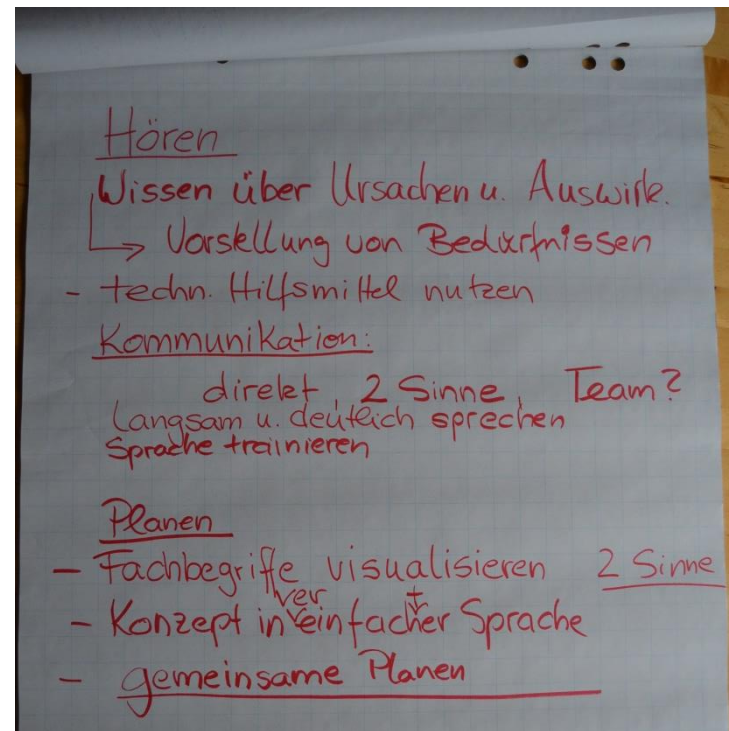 Hören
Wissen über Ursachen u. Auswirk.
→ Vorstellung von Bedürfnissen
- techn. Hilfsmittel nutzen
Kommunikation:
direkt, 2 Sinne, Team?
Langsam u. deutlich sprechen
Sprache trainieren
Planen
- Fachbegriffe visualisieren 2 Sinne
- Konzept in vereinfachter Sprache
- gemeinsame Planen